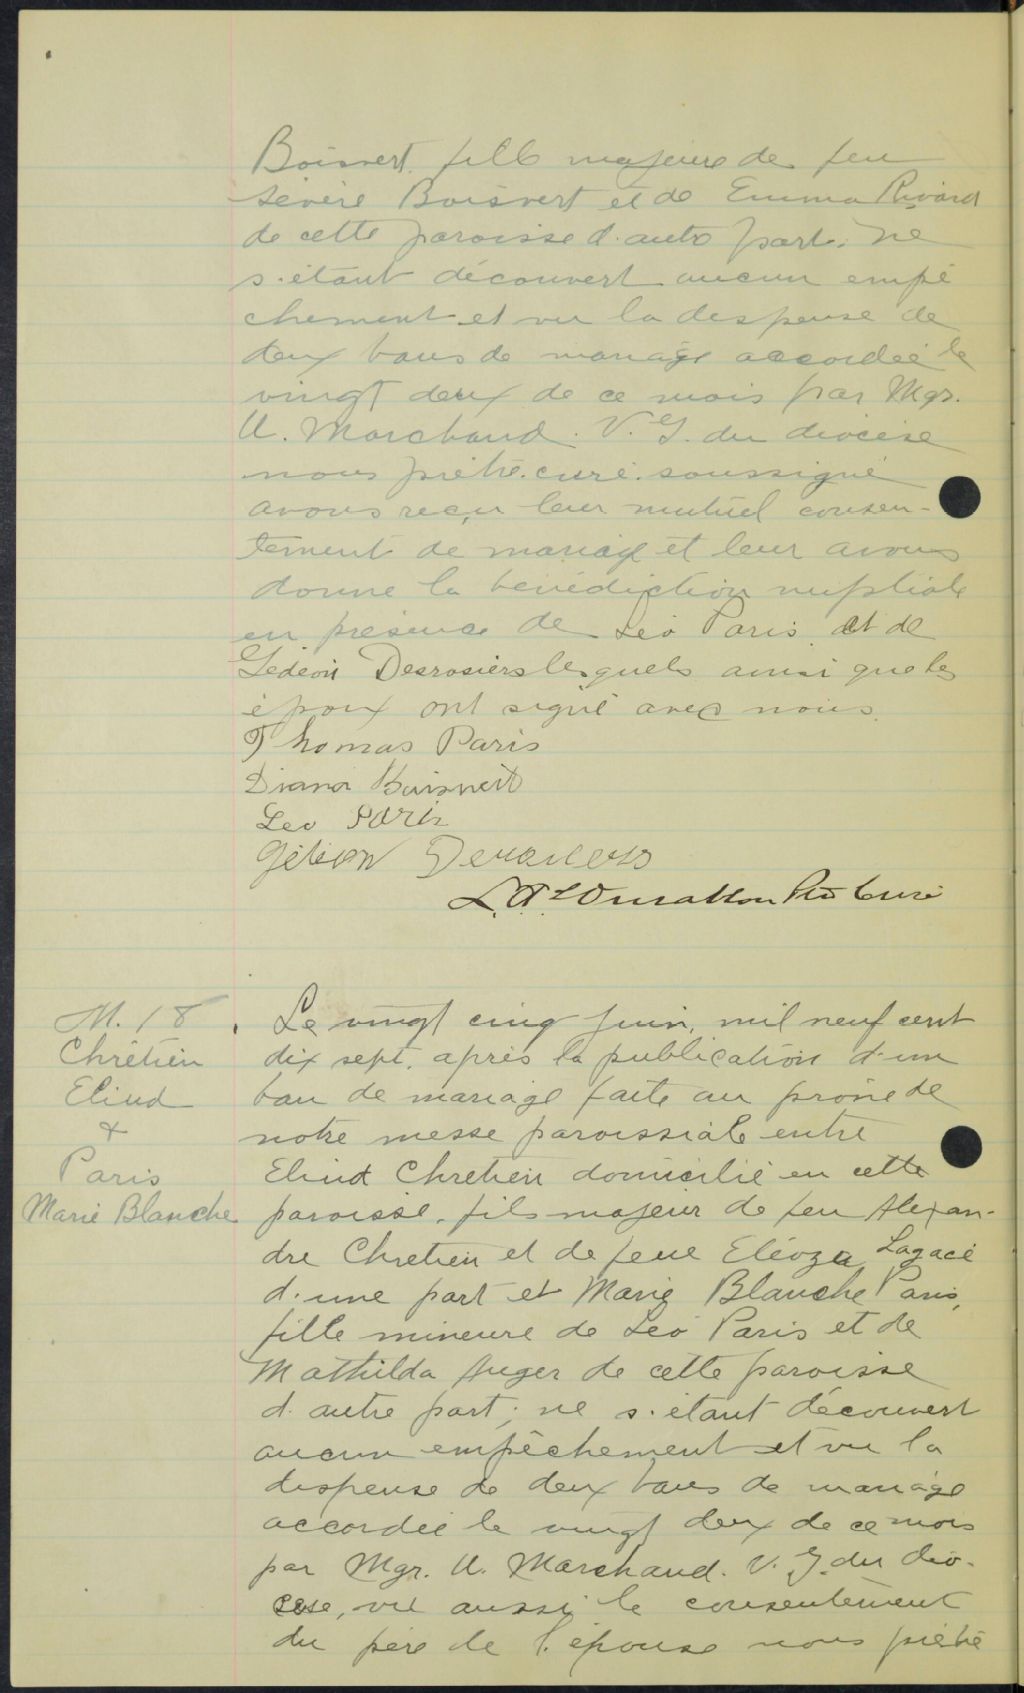 Boisvert, fille majeure de feu
Sévère Boisvert et de Emma Rivard
de cette paroisse d'autre part; ne
s'étant découvert aucun empê
chement et vu la dispense de
deux bans de mariage accordée le
vingt deux de ce mois par Mgr.
U. Marchand. V. G. du diocèse
nous prêtre. curé. soussigné
avons reçu leur mutuel consen-
tement de mariage et leur avons
donné la bénédiction nuptiale
en présence de Léo Paris et de
Gédéon Desrosiers lesquels ainsi que les
époux ont signé avec nous.
Thomas Paris
Diana Boisvert
Leo Paris
Gédéon Desrosiers
Ptr Curé
M. 18
Chrétien
Eliud
&
Paris
Marie Blanche
Le vingt cinq juin, mil neuf cent
dix sept, après la publication d'un
ban de mariage faite au prône de
notre messe paroissiale entre
Eliud Chretien domicilié en cette
paroisse, fils majeur de feu Alexan-
dre Chretien et de feue Eléoza Lagacé
d'une part et Marie Blanche Paris,
fille mineure de Léo Paris et de
Mathilda Auger de cette paroisse
d'autre part; ne s'étant découvert
aucun empêchement et vu la
dispense de deux bans de mariage
accordée le vingt deux de ce mois
par Mgr. U. Marchand. V. G. du dio-
cèse, vu aussi le consentement
du père de l'épouse nous prêtre